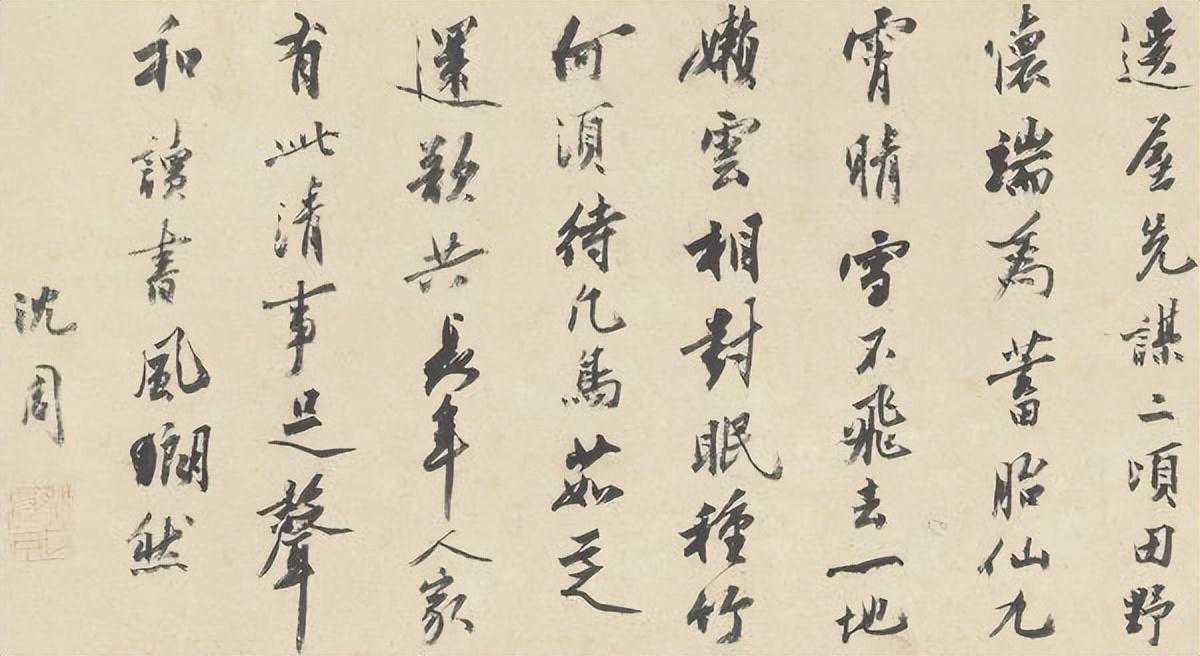 遶屋先謀二頃田野
懷端為蓄胎仙九
霄晴雪不飛去一地
嬾雲相對眠種竹
何須待凡鳥茹芝
還欲共長年人家
有此清事足聲
和讀書風瑯然
沈周